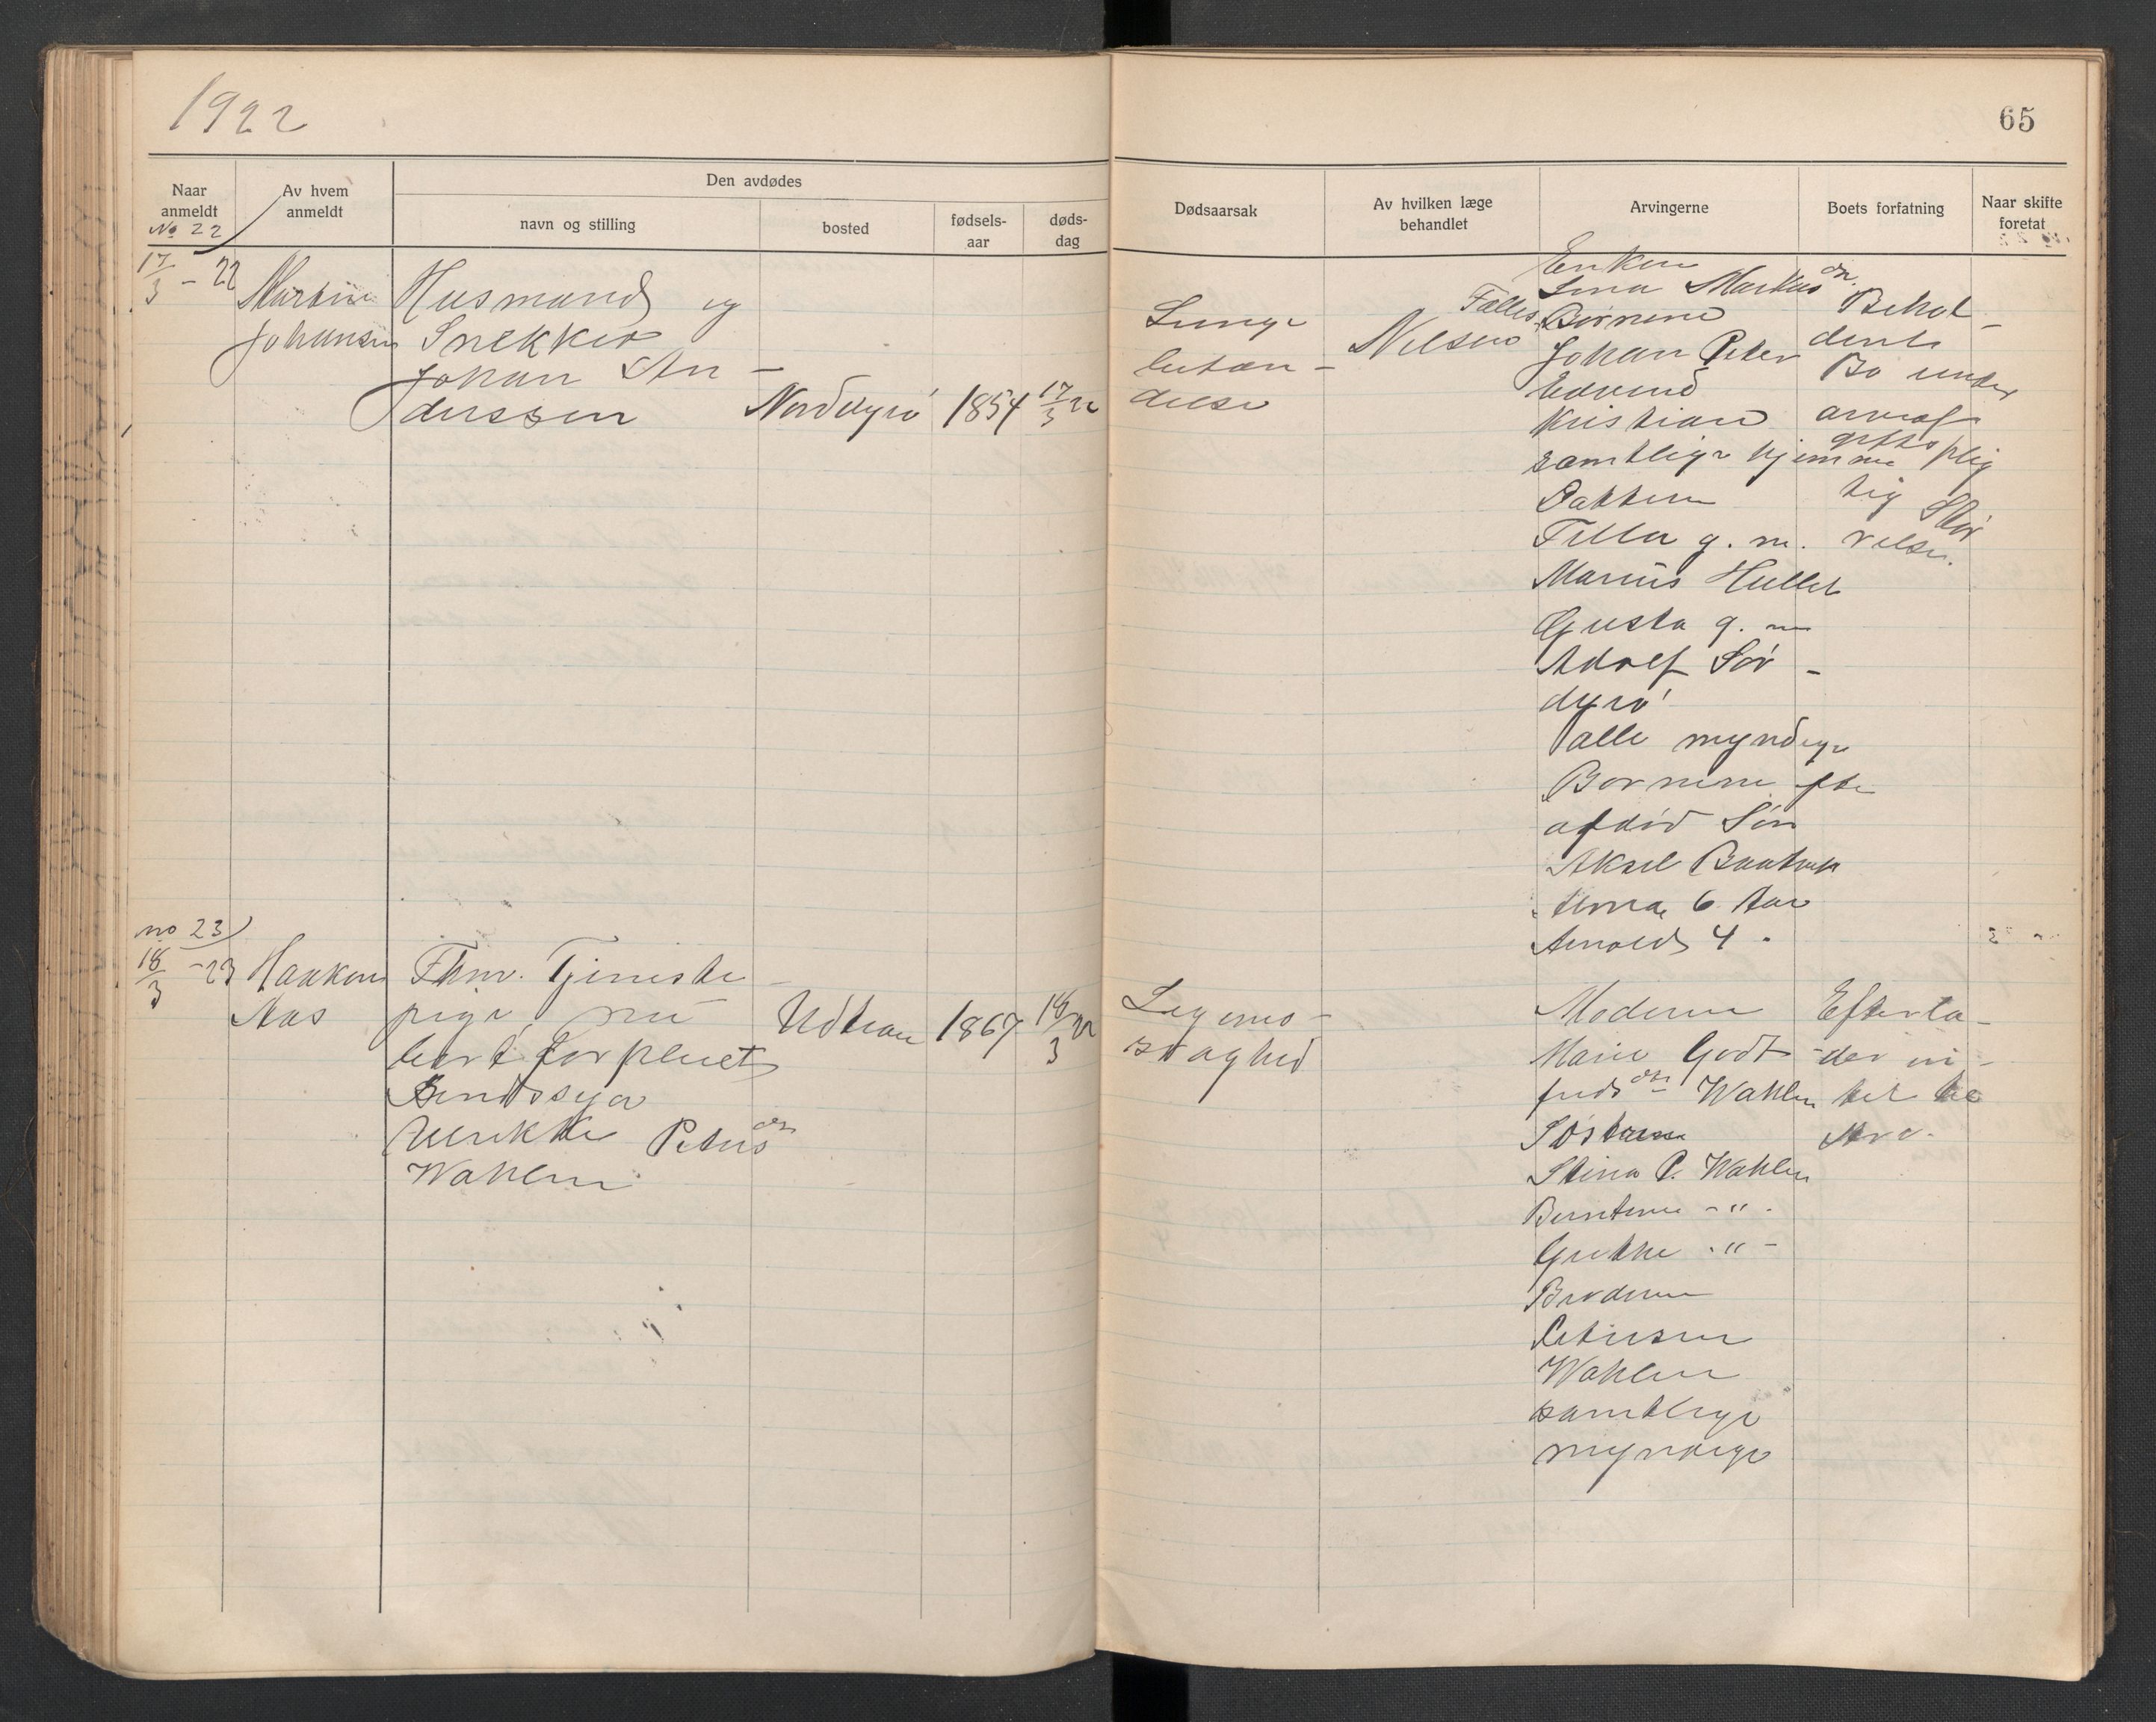 1922
65
Naar anmeldt
Av hvem anmeldt
Den avdødes
navn og stilling
bosted
fødsels-aar
døds-dag
Dødsaarsak
Av hvilken læge behandlet
Arvingerne
Boets forfatning
Naar skifte foretat
No 22
17/3 - 22
Martin
Johansen
Husmand og
Snekker
Johan An-
derssen
Norddyrø
1854
17/3 22
Lunge
betæn-
delse
Nilsen
Enken
Lina Markusdtr.
Fælles Børnene
Johan Peter
Edvind
Kristian
samtlige hjemme
Døttrene
g. m.
Marius Hullet
Gusta g. m
Adolf Sør-
dyrø
alle myndige
Børnene efter
afdød Søn
Aksel
6 Aar
Arnold 4 "
Behol-
dent
Bo under
arveaf
gifts plig
tig Stør
relse.
no 23
18/3 - 23
Haakon
Aas
Fhnv. Tjeneste-
pige nu
Ulrikke Petersdtr
Wahlen
Udtian
1867
18/3 22
Legems-
svaghed
Moderen
Marie Godt-
fredsdtr Wahlen
Søstrene
Stina P. Wahlen
Berntine - " -
Grethe - " -
Broderen
Wahlen
samtlige
myndige
Efterla-
der in-
tet til
Arv.